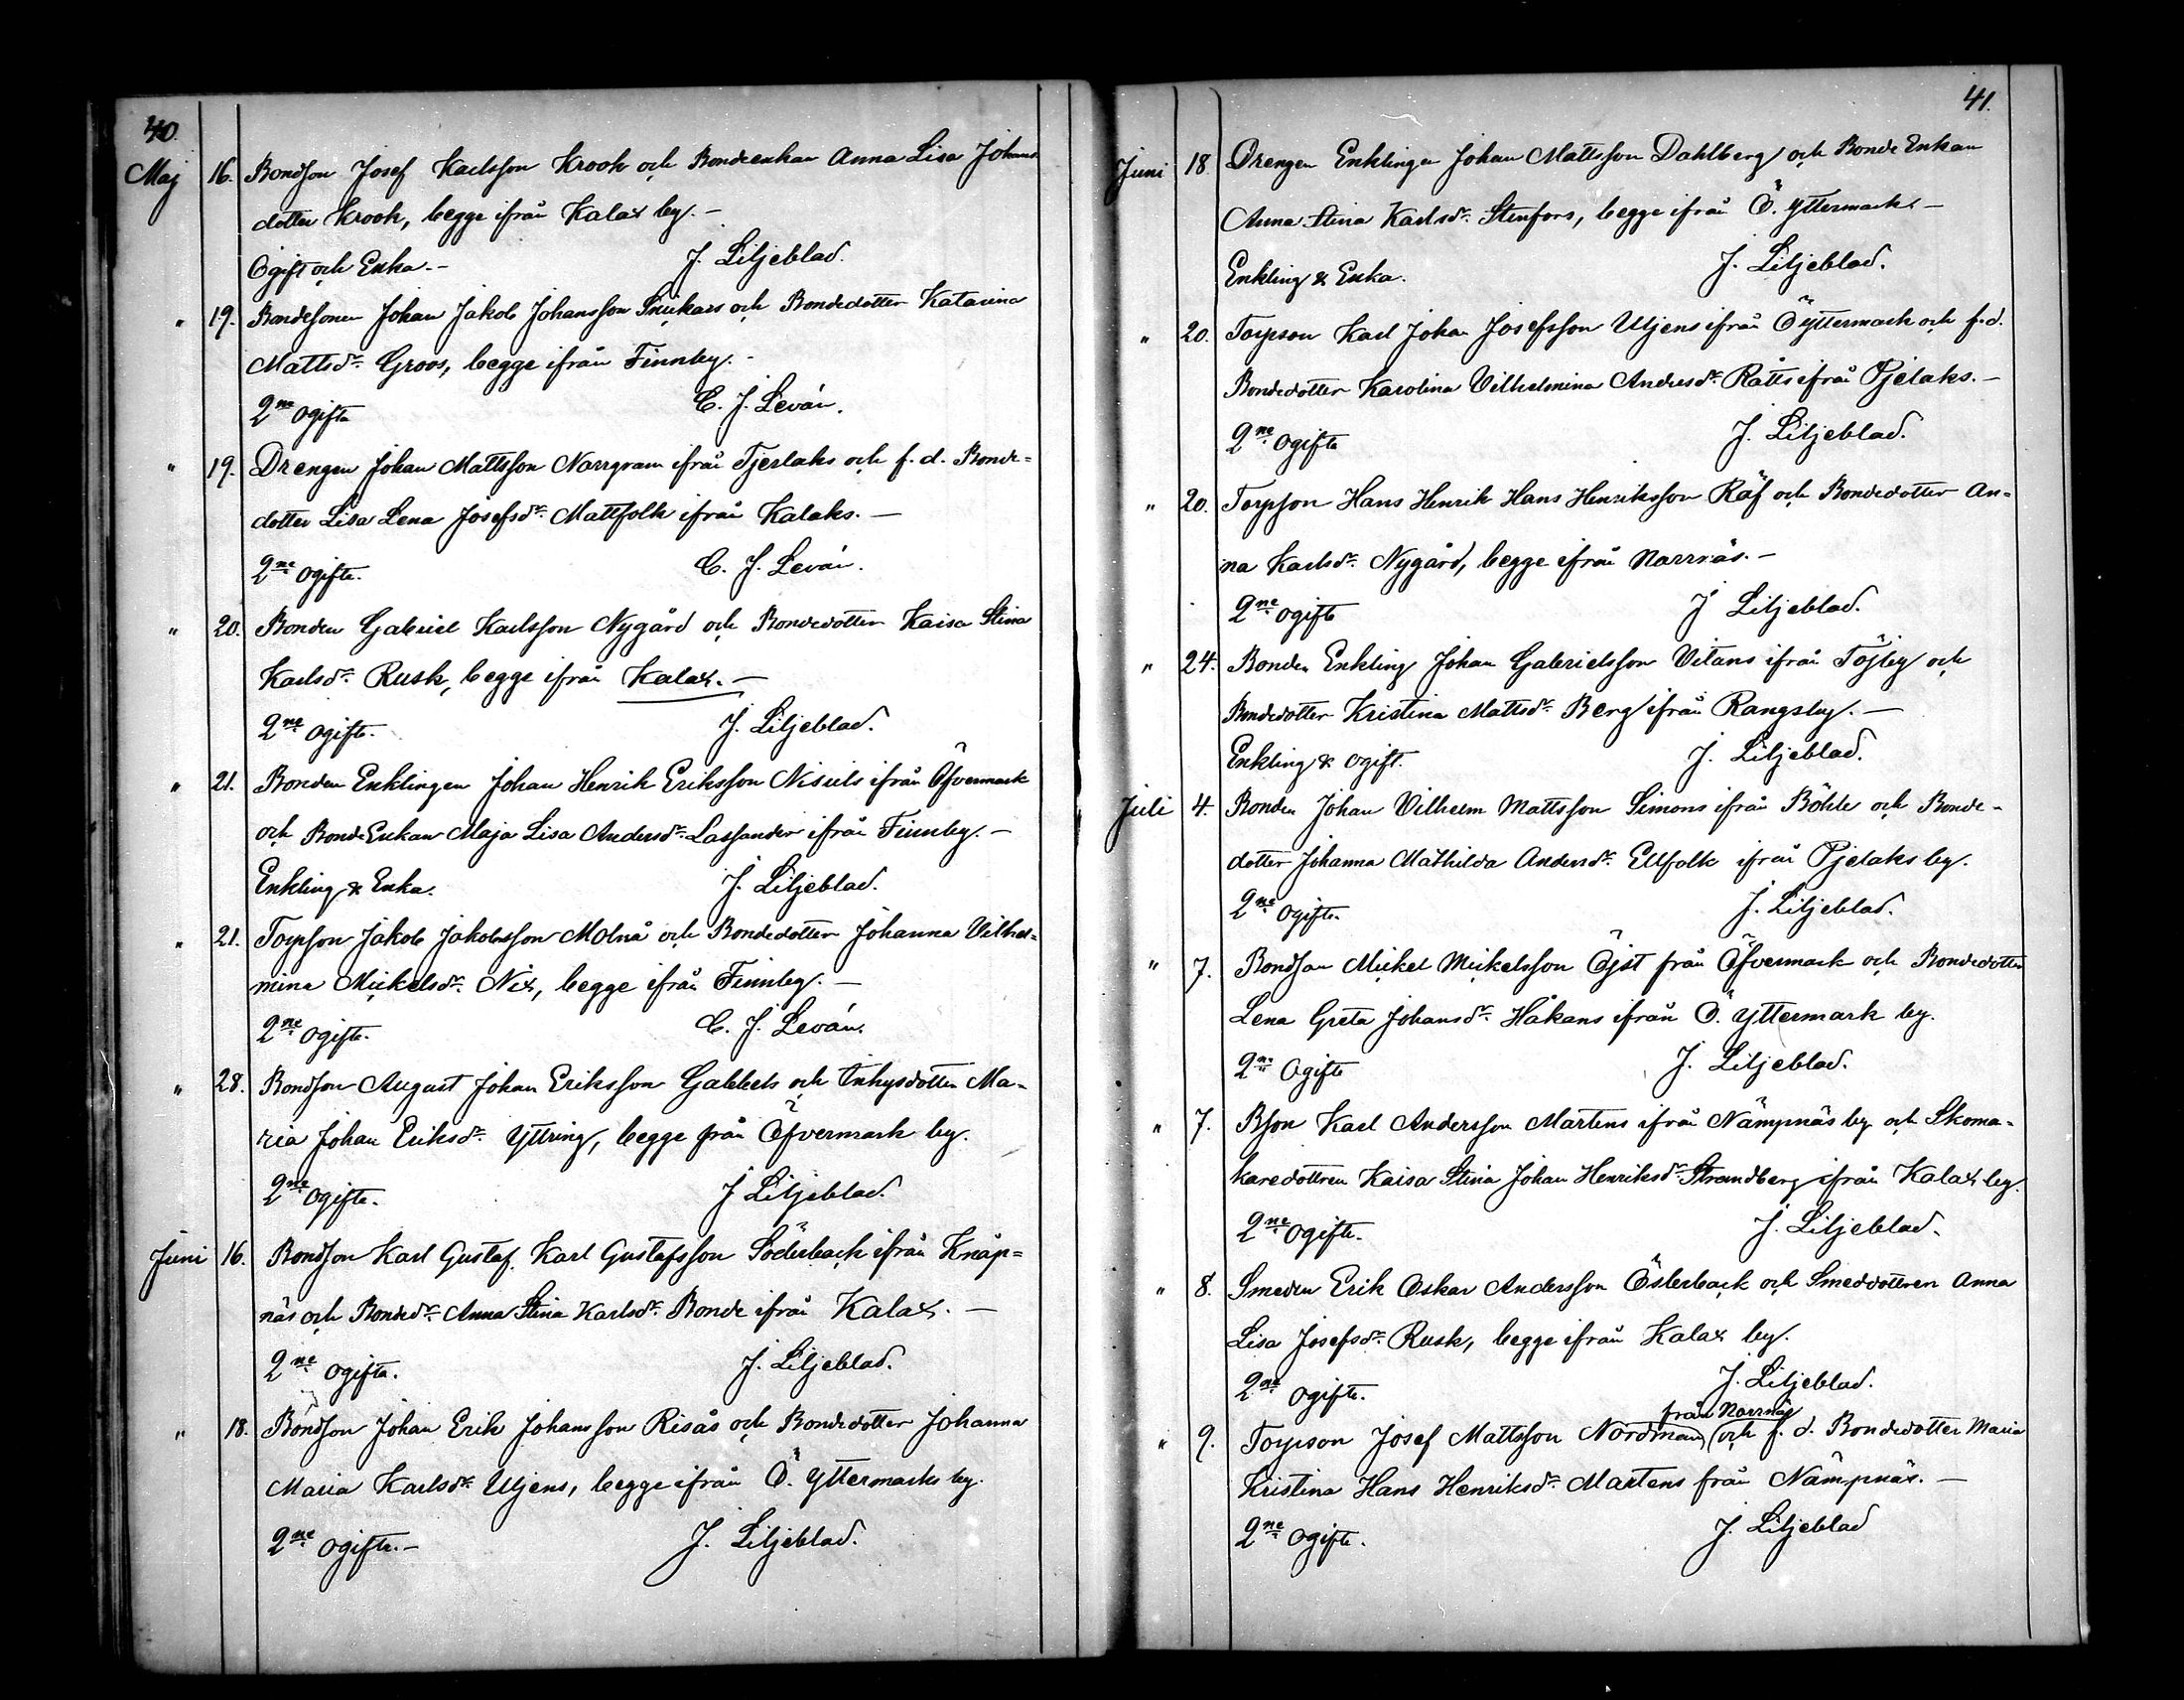 40.
Maj 16. Bondson Josef Karlsson Krook och Bondeenkan Anna Lisa Johans
dotter Krook, begge ifrån Kalax by. –
Ogift och Enka. – J. Liljeblad.
" 19. Bondesonen Johan Jakob Johansson Snickars och Bondedotter Katarina
Mattsdr. Groos, begge ifrån Finnby. –
2ne ogifta C. J. Levón.
" 19. Drengen Johan Mattsson Norrgran ifrån Tjerlaks och f. d. Bonde=
dotter Lisa Lena Josefsdr. Mattfolk ifrån Kalaks. –
2ne ogifte. C. J. Levón.
" 20. Bonden Gabriel Karlsson Nygård och Bondedotter Kaisa Stina
Karlsdr. Rusk, begge ifrån Kalax. –
2ne ogifte. J. Liljeblad.
" 21. Bonden Enklingen Johan Henrik Eriksson Nisuls ifrån Öfvermark
och BondeEnkan Maja Lisa Andersdr. Lassander ifrån Finnby. –
Enkling & Enka. J. Liljeblad.
" 21. Torpson Jakob Jakobsson Molnå och Bondedotter Johanna Vilhel=
mina Mickelsdr. Nix, begge ifrån Finnby. –
2ne ogifte. C. J. Levón.
" 28. Bondson August Johan Eriksson Gabbels och Inhysdotter Ma=
ria Johan Eriksdr. Yttring, begge från Öfvermark by.
2ne ogifte. J Liljeblad.
Juni 16. Bondson Karl Gustaf Karl Gustafsson Söderback ifrån Knåp=
näs och Bondedr. Anna Stina Karlsdr. Bonde ifrån Kalax. –
2ne ogifta. J. Liljeblad.
" 18. Bondson Johan Erik Johansson Risås och Bondedotter Johanna
Maria Karlsdr. Utjens, begge ifrån Ö. Yttermarks by.
2ne ogifte. – J. Liljeblad.
41.
Juni 18. Drengen Enklingen Johan Mattsson Dahlberg och Bonde Enkan
Anna Stina Karlsdr. Stenfors, begge ifrån Ö. Yttermark –
Enkling & Enka. J. Liljeblad.
" 20. Torpson Karl Johan Josefsson Utjens ifrån Ö Yttermark och f. d.
Bondedotter Karolina Vilhelmina Andersdr. Rålts ifrån Pjelaks. –
2ne ogifte J. Liljeblad.
" 20. Torpson Hans Henrik Hans Henriksson Räf och Bondedotter An=
na Karlsdr. Nygård, begge ifrån Norrnäs. –
2ne ogifte J Liljeblad.
" 24. Bonden Enkling Johan Gabrielsson Vitans ifrån Töjby och
Bondedotter Kristina Mattsdr. Berg ifrån Rangsby. –
Enkling & ogift. J. Liljeblad.
Juli 4. Bonden Johan Vilhelm Mattsson Simons ifrån Böhle och Bonde=
dotter Johanna Mathilda Andersdr. Ellfolk ifrån Pjelaks by.
2ne ogifte. J. Liljeblad.
" 7. Bondson Mickel Mickelsson Öjst från Öfvermark och Bondedotter
Lena Greta Johansdr. Håkans ifrån Ö. Yttermark by.
2ne Ogifte J. Liljeblad.
" 7. Bson Karl Andersson Martens ifrån Nämpnäs by och Skoma=
karedottren Kaisa Stina Johan Henriksdr. Strandberg ifrån Kalax by.
2ne ogifte. J. Liljeblad.
" 8. Smeden Erik Oskar Andersson Österback och Smeddottren Anna
Lisa Josefsdr. Rusk, begge ifrån Kalax by.
2ne ogifte. J. Liljeblad.
från Norrnäs
" 9. Torpson Josef Mattsson Nordman och f. d. Bondedotter Maria
Kristina Hans Henriksdr. Martens från Nämpnäs. –
2ne ogifte. J. Liljeblad